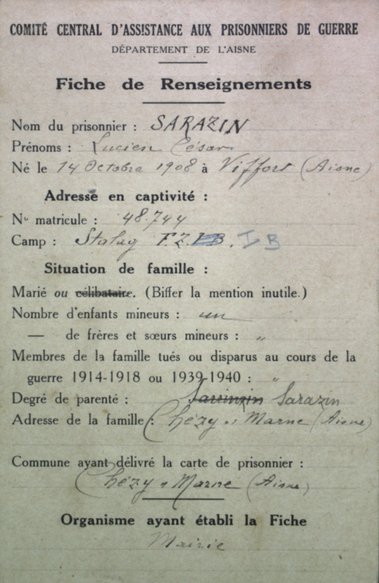 COMITÉ CENTRAL D'ASSISTANCE AUX PRISONNIERS DE GUERRE
DÉPARTEMENT DE L'AISNE
Fiche de Renseignements
Nom du prisonnier : SARAZIN
Prénoms : Lucien César
Né le 14 Octobre 1908 à Viffort (Aisne)
Adresse en captivité :
No matricule : 48.744
Camp : Stalag I B
Situation de famille :
Marié ou célibataire. (Biffer la mention inutile.)
Nombre d'enfants mineurs : un
— de frères et sœurs mineurs : "
Membres de la famille tués ou disparus au cours de la
guerre 1914-1918 ou 1939-1940 : "
Degré de parenté : Sarazin
Adresse de la famille : Chézy s/ Marne (Aisne)
Commune ayant délivré la carte de prisonnier :
Chézy s/ Marne (Aisne)
Organisme ayant établi la Fiche
Mairie